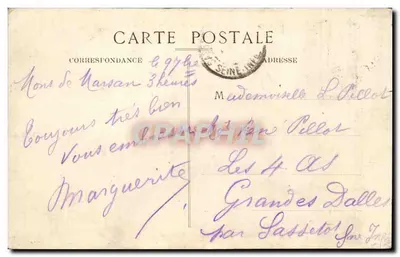 CARTE POSTALE
CORRESPONDANCE
ADRESSE
SEINE-INF
le 9 7bre
Mont de Marsan 3 heures
Toujours très bien
Vous embrasse
Marguerite
Mademoiselle L. Pillot
Pillot
Les 4 As
Grandes Dalles
par Sassetot Sne Infre